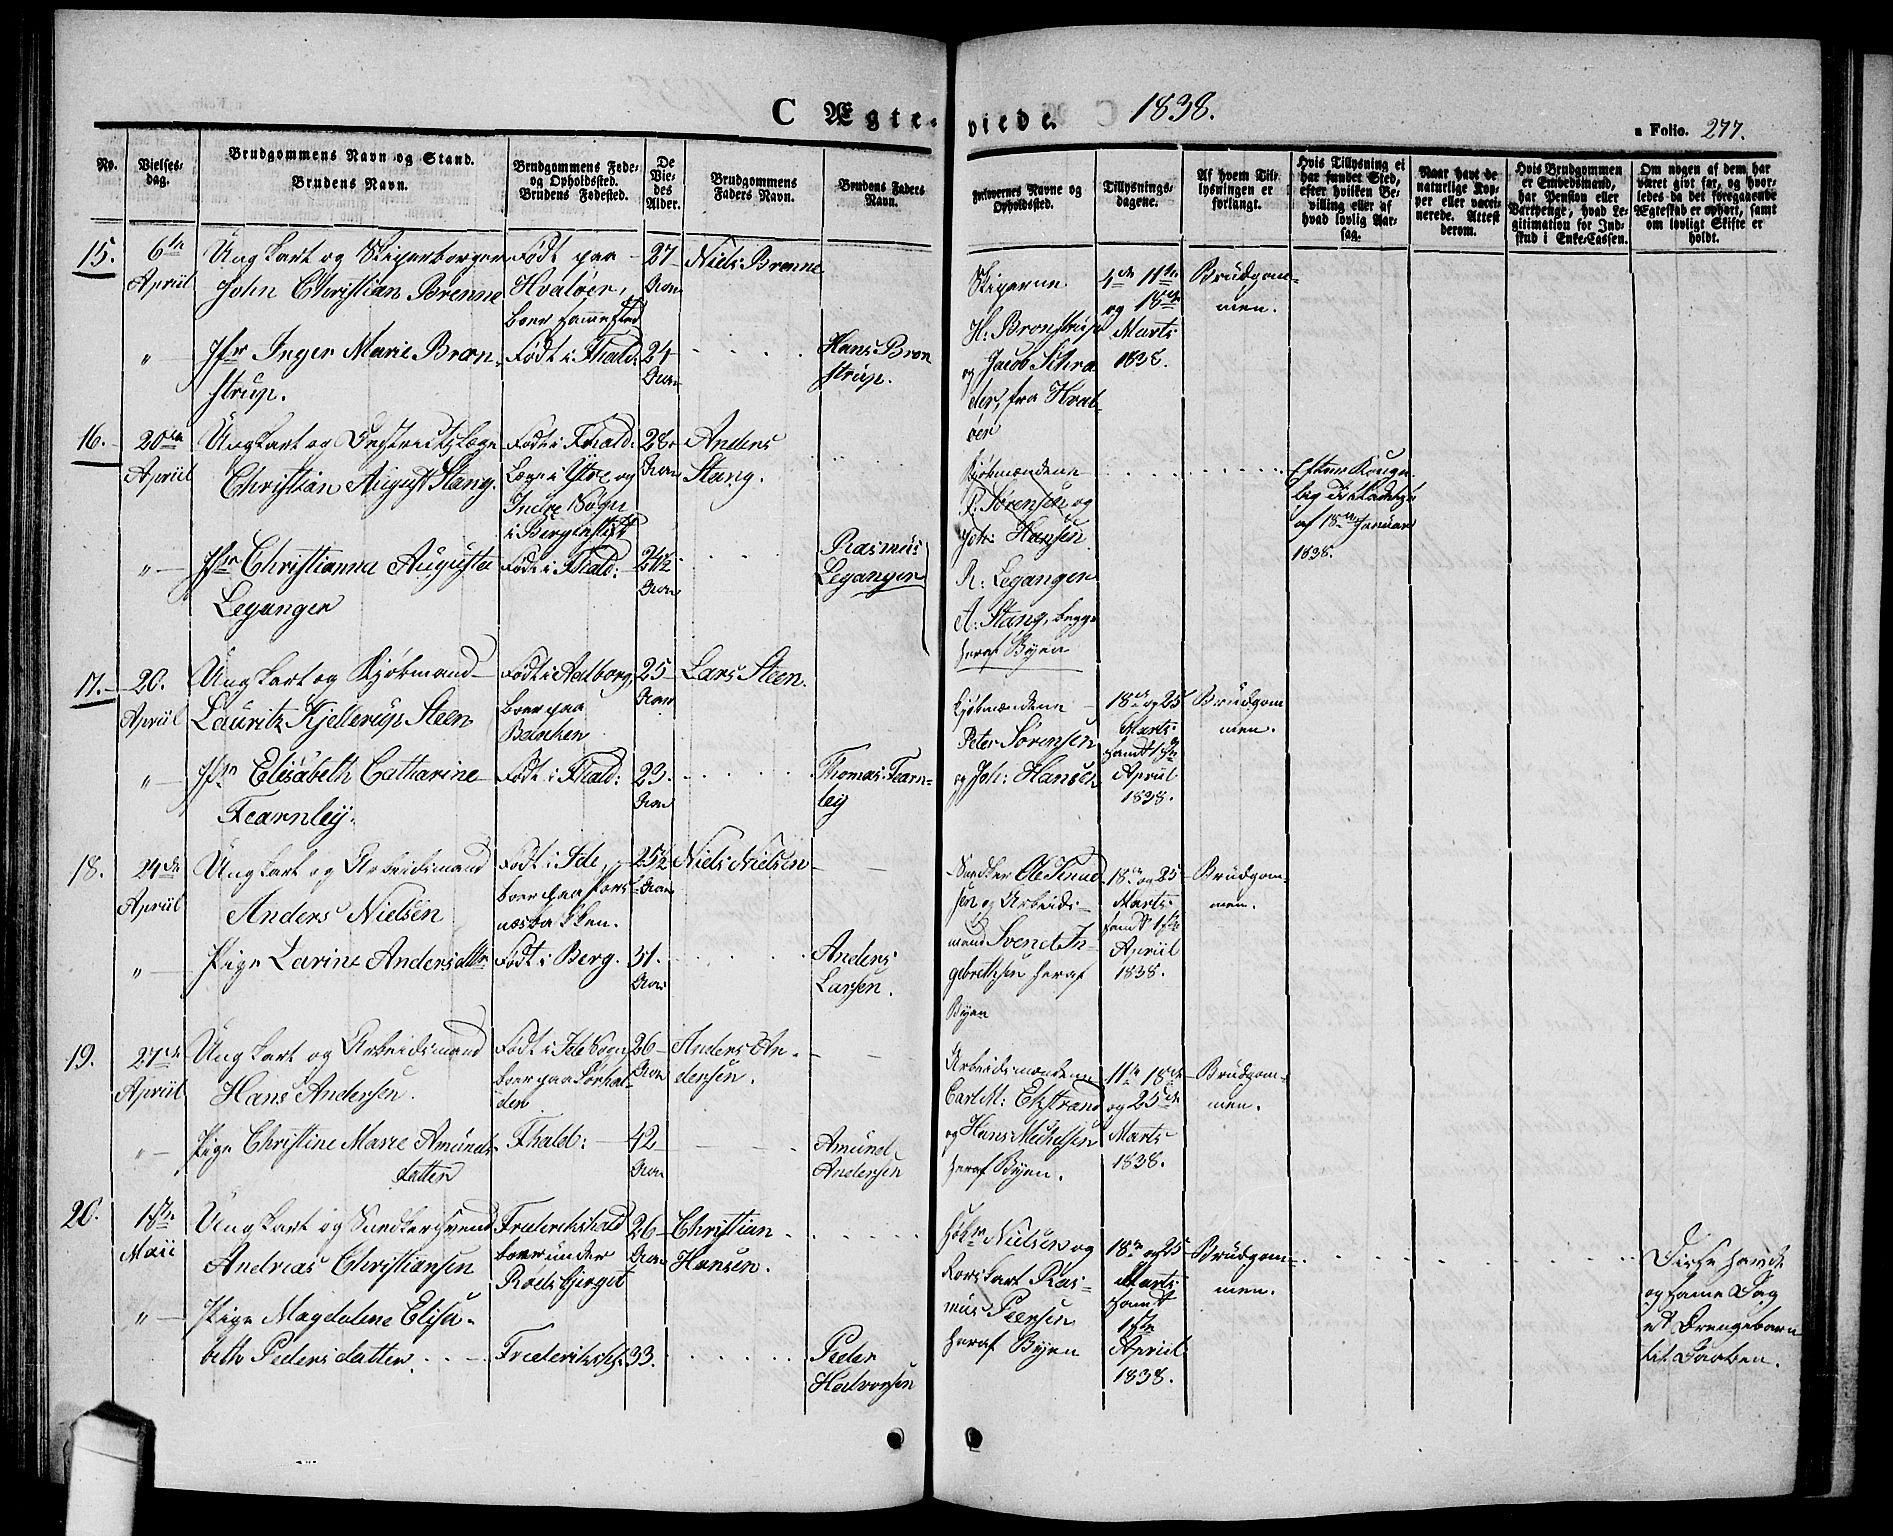 C Ægte-viede. 1838.
a Folio. 277.
No.
Vielses-dag.
Brudgommens Navn og Stand.
Brudens Navn.
Brudgommens Føde- og Opholdssted.
Brudens Fødested.
De Viedes Alder.
Brudgommens Faders Navn.
Brudens Faders Navn.
Forlovernes Navne og Opholdssted.
Tillysnings-dagene.
Af hvem Tillysningen er forlangt.
Hvis Tillysning ei har fundet Sted, efter hvilken Bevilling eller af hvad lovlig Aarsag.
Naar havt de naturlige Kopper eller vaccinerede. Attest derom.
Hvis Brudgommen er Embedsmand, har Pension eller Vartpenge, hvad Legitimation for Indskud i Enke-Cassen.
Om nogen af dem har været givt før, og hvorledes da det foregaaende Ægteskab er ophørt, samt om lovligt Skifte er holdt.
15. 6te April
Ungkarl og Skipperborger
John Christian Brenne
Født paa Hvaløer, boer sammested
27 Aar
Niels Brenne
" Jfr Inger Marie Bronstrup.
Født i Fhald:
24 Aar
Hans Bronstrup.
Skiperne H: Bronstrup og Jacob Schrøder, fra Hvaløer
4de 11te og 18de Marts 1838.
Brudgommen.
16. 20de April
Ungkarl og Districtslæge
Christian August Stang.
Født i Fhald: Læge i Ytre og Indre Sogn i Bergenstift
28 Aar
Anders Stang.
" Jfr Christianna Augusta Leganger
Født i Fhald:
24½ Aar
Rasmus Leganger
Kjøbmændene P. Sørensen og Joh: Hansen
R: Leganger A: Stang, begge heraf Byen
Efter Kongelig Tilladelse af 18de Januar 1838.
17. 20. April
Ungkarl og Kjøbmand
Lauritz Kjellerup Steen
Født i Aalborg, boer paa Banken
25 Aar
Lars Steen.
" Jfr Elisabeth Catharine Fearnley.
Født i Fhald:
23. Aar
Thomas Fearnley
Kjøbmændene Peter Sørensen og Joh: Hansen
18de og 25 Marts samt 1ste April 1838.
Brudgommen.
18. 24de April
Ungkarl og Arbeidsmand
Anders Nielsen
Født i Ide, boer paa Torsnæsbakken.
25½ Aar
Niels Nielsen
" Pige Larine Andersdtr
Født i Berg.
31. Aar
Anders Larsen.
Snedker Ole Knudsen og Arbeidsmand Svend Ingebrethsen heraf Byen
18de og 25 Marts samt 1ste April 1838.
Brudgommen.
19. 27de April
Ungkarl og Arbeidsmand
Hans Andersen.
Født i Ide Sogn boer paa Sørhalden
26 Aar
Anders Andersen.
" Pige Christine Marie Amundsdatter
Fhald:
42 Aar
Amund Andersen
Arbeidsmændene Carl M: Ekstrand og Hans Michelsen heraf Byen.
11te 18de og 25de Marts 1838.
Brudgommen.
20. 1ste Maii
Ungkarl og Snedkersvend
Andreas Christiansen
Frederikshald boer under Rødsbjerget
26 Aar
Christian Hansen.
" Pige Magdalene Elisabeth Pedersdatter.
Frederikshd.
33.
Peder Halvorsen
Nielsen og Rasmus Peersen heraf Byen
18de og 25 Marts samt 1ste April 1838.
Brudgommen.
Disse havde og samme Dag et Drengebarn til Daaben.